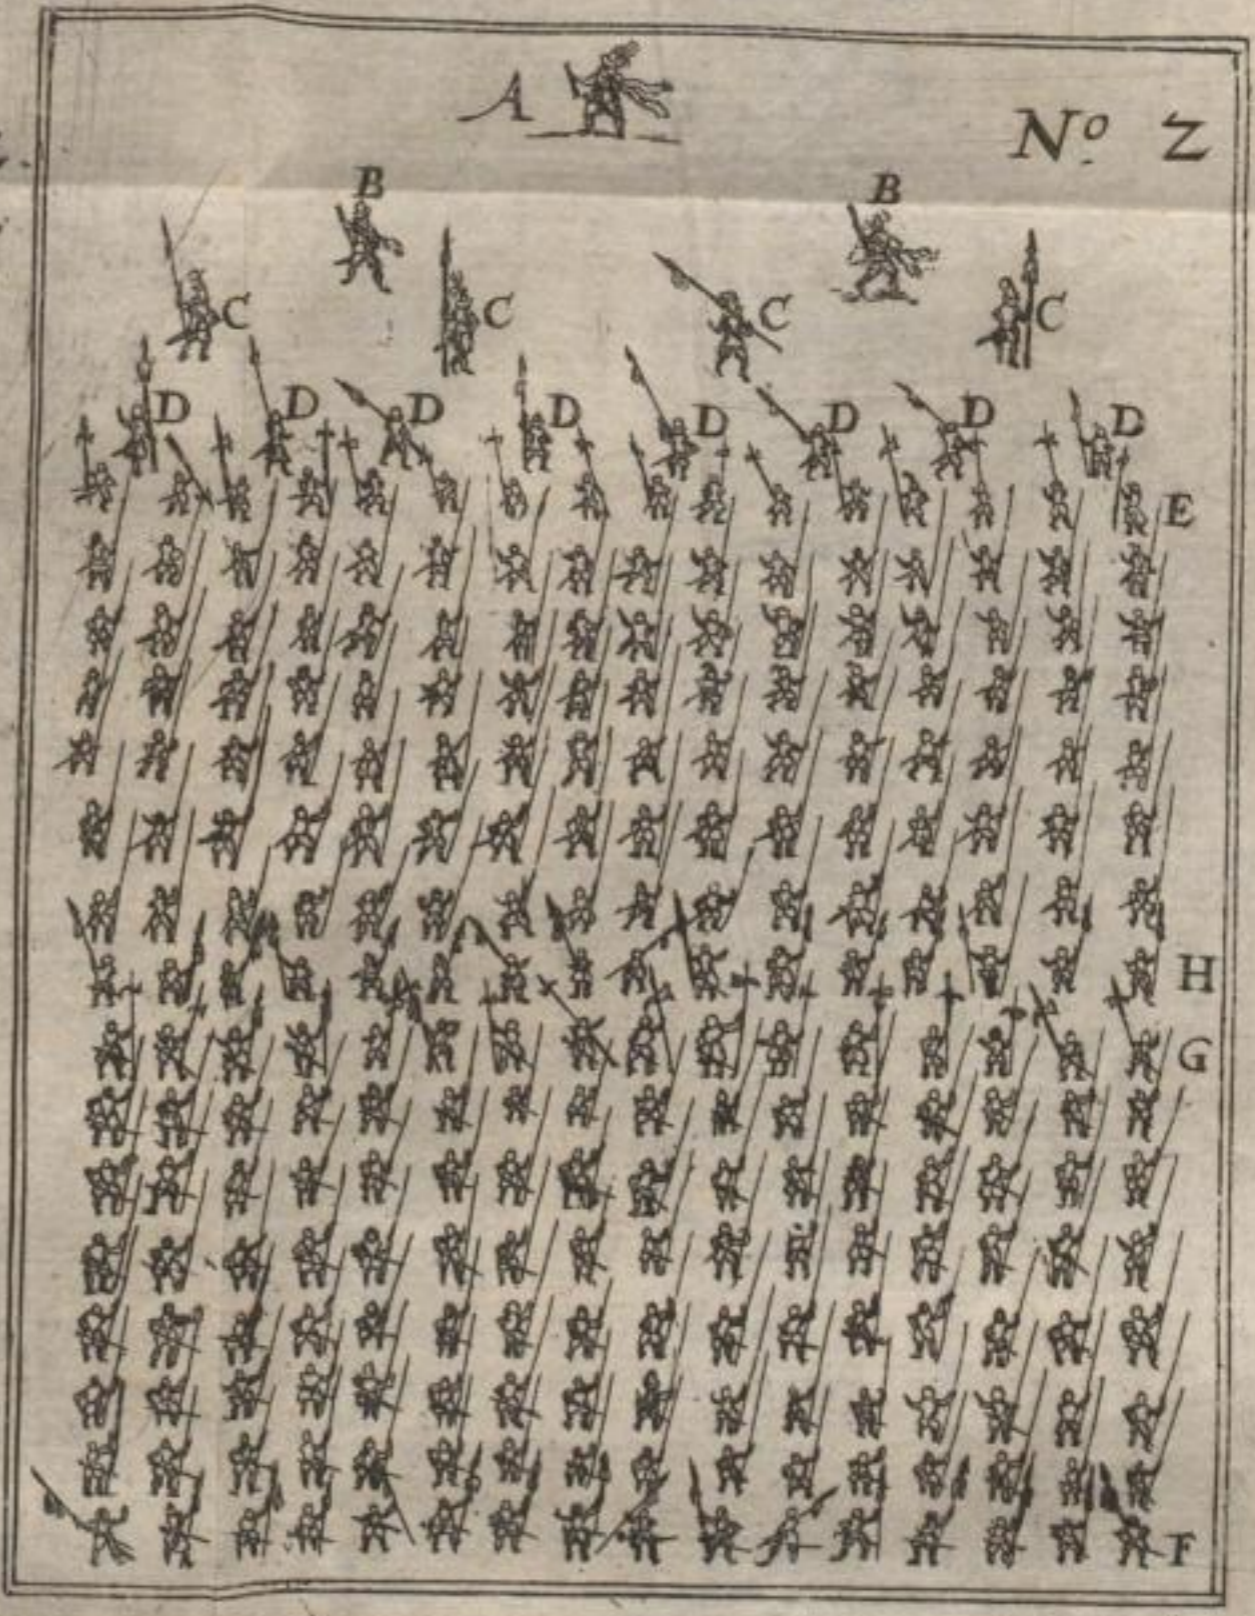 A
Nº 2
B B
C C C C
D D D D D D D D
E
H
G
F